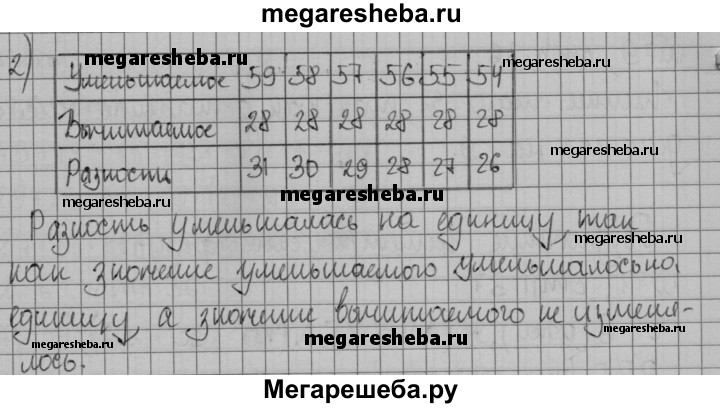 megaresheba.ru
2)
megaresheba.ru
Уменьшаемое 59 58 57 56 55 54
Вычитаемое 28 28 28 28 28 28
megaresheba.ru
Разность 31 30 29 28 27 26
megaresheba.ru
megaresheba.ru
Разность уменьшалась на единицу, так
megaresheba.ru
как значение уменьшаемого уменьшалось на
единицу, а значение вычитаемого не изменя-
megaresheba.ru
megaresheba.ru
лось.
Мегарешеба.ру